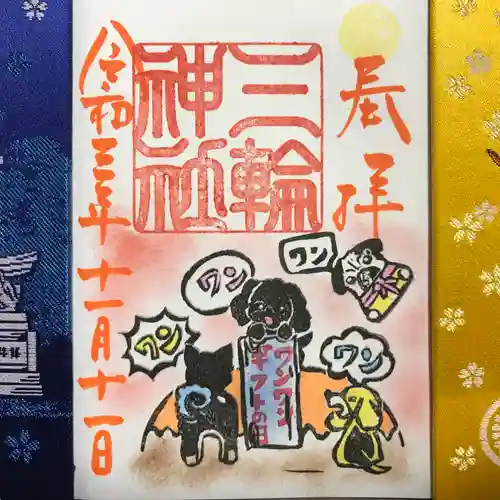 拝
三輪
神社
令和三年十一月十一日
ワン
ワン
ワン
ワン
ワンワン
ギフトの日